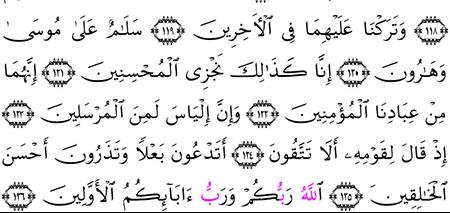 ﴿١١٨﴾ وَتَرَكْنَا عَلَيْهِمَا فِى ٱلْأَخِرِينَ ﴿١١٩﴾ سَلَـٰمٌ عَلَىٰ مُوسَىٰ
وَهَـٰرُونَ ﴿١٢٠﴾ إِنَّا كَذَٰلِكَ نَجْزِى ٱلْمُحْسِنِينَ ﴿١٢١﴾ إِنَّهُمَا
مِنْ عِبَادِنَا ٱلْمُؤْمِنِينَ ﴿١٢٢﴾ وَإِنَّ إِلْيَاسَ لَمِنَ ٱلْمُرْسَلِينَ ﴿١٢٣﴾
إِذْ قَالَ لِقَوْمِهِۦٓ أَلَا تَتَّقُونَ ﴿١٢٤﴾ أَتَدْعُونَ بَعْلًا وَتَذَرُونَ أَحْسَنَ
ٱلْخَـٰلِقِينَ ﴿١٢٥﴾ ٱللَّهُ رَبُّكُمْ وَرَبُّ ءَابَآئِكُمُ ٱلْأَوَّلِينَ ﴿١٢٦﴾